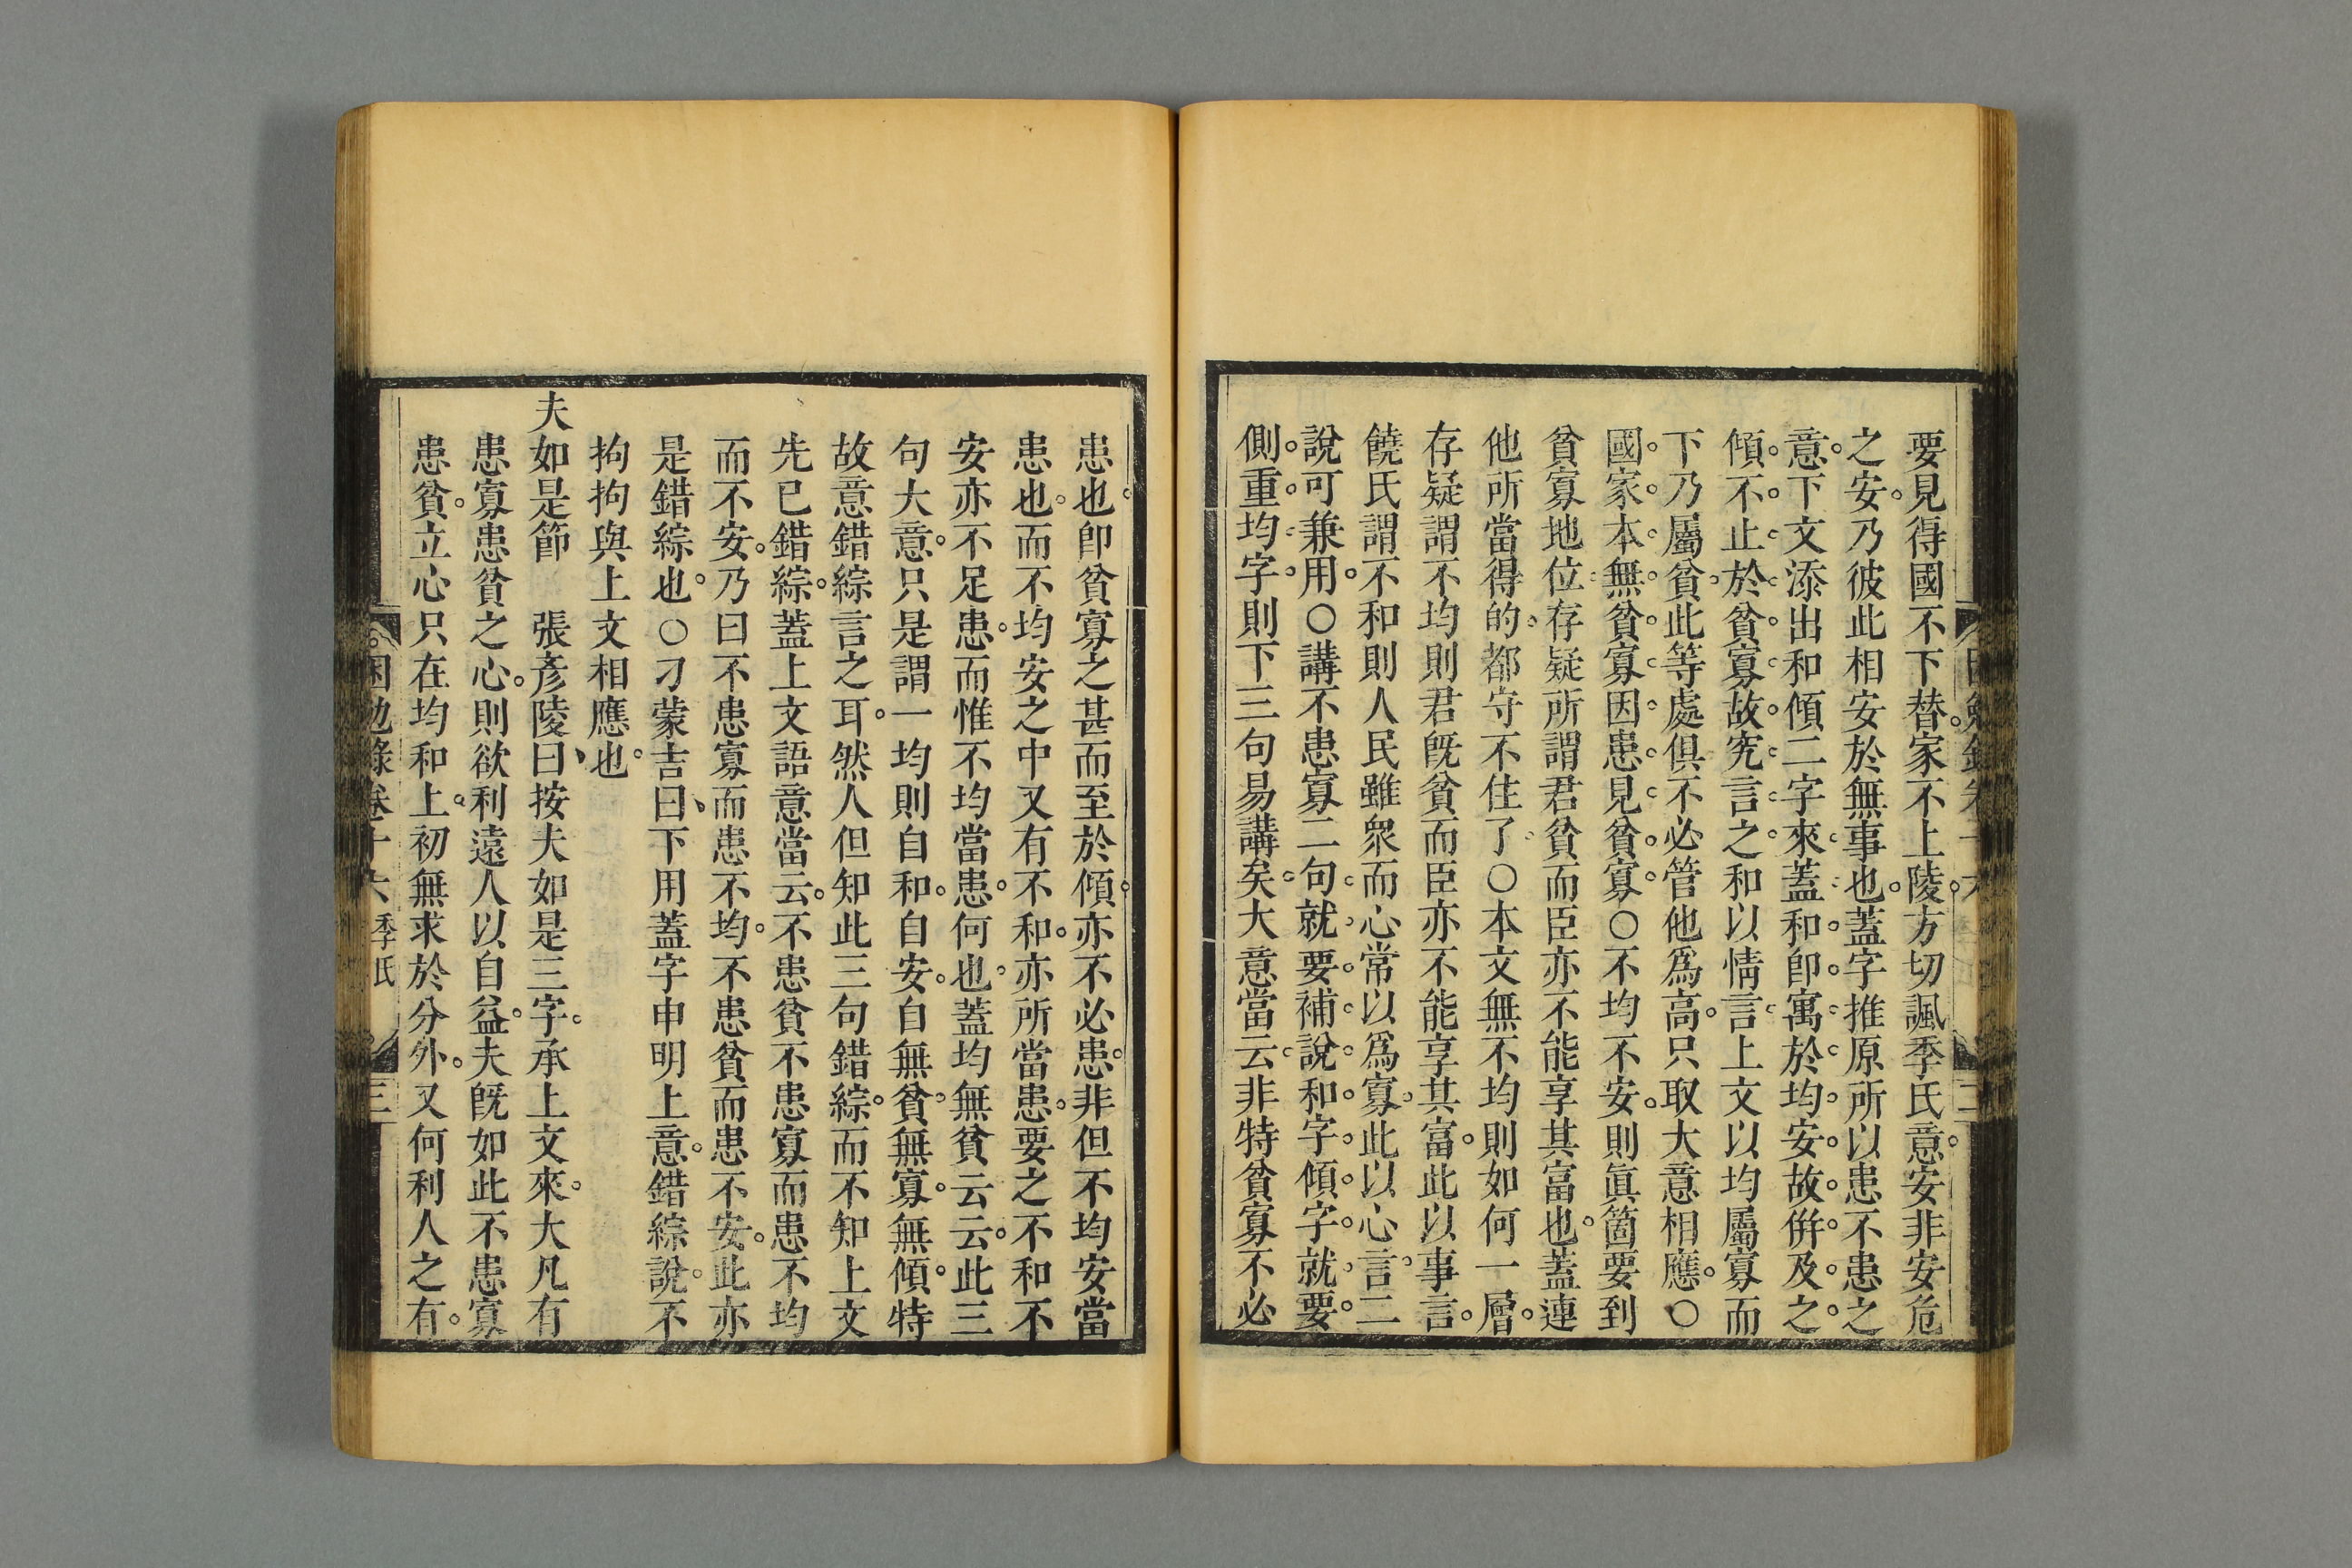 要見得國不下替家不上陵方切諷季氏意安非安危
之安乃彼此相安於無事也蓋字推原所以患不患之
意下文添出和傾二字來蓋和卽寓於均安故倂及之
傾不止於貧寡故究言之和以情言上文以均屬寡而
下乃屬貧此等處俱不必管他爲高只取大意相應〇
國家本無貧寡因患見貧寡〇不均不安則眞箇要到
貧寡地位存疑所謂君貧而臣亦不能享其富也蓋連
他所當得的都守不住了〇本文無不均則如何一層
存疑謂不均則君旣貧而臣亦不能享其富此以事言
饒氏謂不和則人民雖衆而心常以爲寡此以心言二
說可兼用〇講不患寡二句就要補說和字傾字就要
側重均字則下三句易講矣大意當云非特貧寡不必
患也卽貧寡之甚而至於傾亦不必患非但不均安當
患也而不均安之中又有不和亦所當患要之不和不
安亦不足患而惟不均當患何也蓋均無貧云云此三
句大意只是謂一均則自和自安自無貧無寡無傾特
故意錯綜言之耳然人但知此三句錯綜而不知上文
先已錯綜蓋上文語意當云不患貧不患寡而患不均
而不安乃曰不患寡而患不均不患貧而患不安此亦
是錯綜也〇刁蒙吉曰下用蓋字申明上意錯綜說不
拘拘與上文相應也
夫如是節 張彥陵曰按夫如是三字承上文來大凡有
患寡患貧之心則欲利遠人以自益夫旣如此不患寡
患貧立心只在均和上初無求於分外又何利人之有
困勉錄卷十六 季氏 三